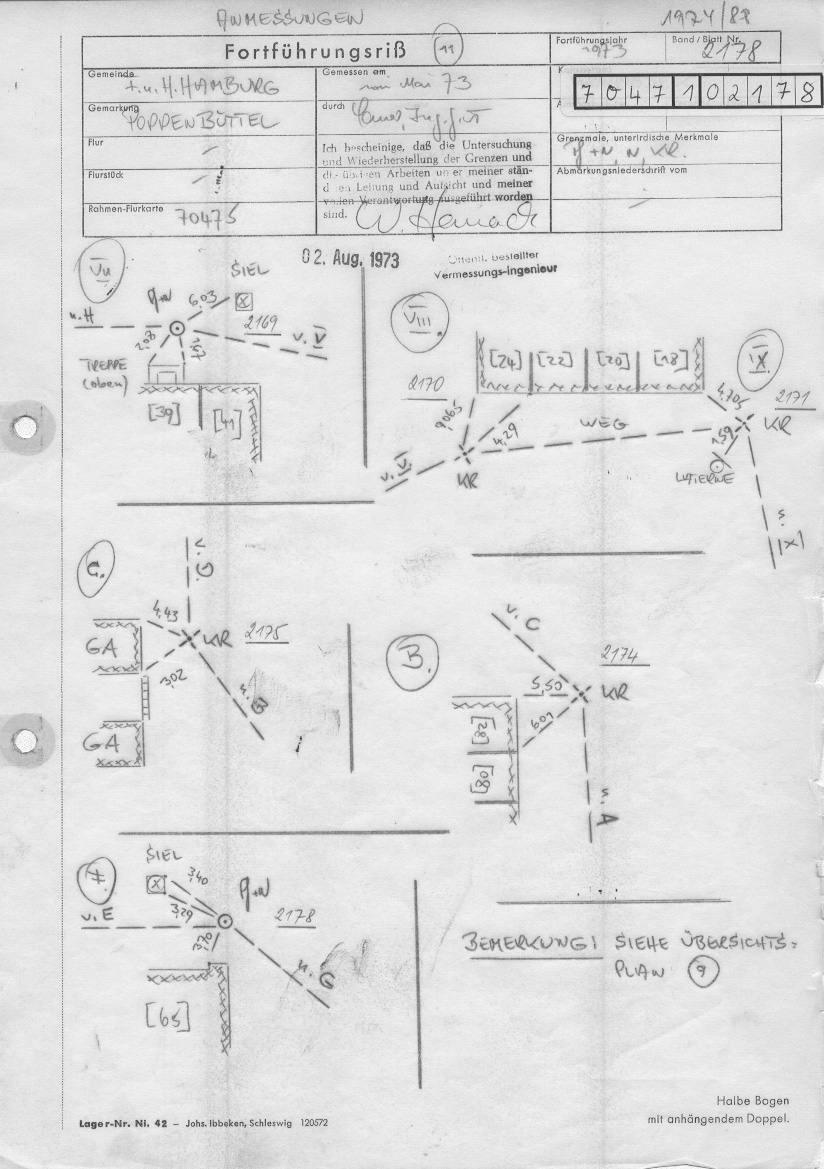 ANMESSUNGEN
1974/88
Fortführungsriß (11)
Fortführungsjahr
1973
Band / Blatt Nr.
2178
Gemeinde
F.u.H.HAMBURG
Gemessen am
Mai 73
7047102178
Gemarkung
POPPENBÜTTEL
durch
Flur
Flurstück
Rahmen-Flurkarte 70475
Ich bescheinige, daß die Untersuchung
und Wiederherstellung der Grenzen und
die übrigen Arbeiten unter meiner stän-
digen Leitung und Aufsicht und meiner
vollen Verantwortung ausgeführt worden
sind.
Grenzmale, unterirdische Merkmale
+N, N, KR.
Abmarkungsniederschrift vom
02. Aug. 1973
Öffentl. bestellter
Vermessungs-Ingenieur
VII
SIEL
6,03
n.H
2169
v. V
2,08
1,57
TREPPE
(oben)
[39]
[41]
VIII.
[24] [22] [20] [18]
IX.
2170
9,065
4,29
WEG
4,705
2171
KR
1,59
LATERNE
KR
C.
v. D.
4,43
GA
KR
2175
3,02
GA
n. B
B.
v. C
2174
5,50
KR
6,01
[28]
[30]
n. A
F.
SIEL
3,40
3,29
v. E
2178
3,70
n. G
[65]
BEMERKUNG! SIEHE ÜBERSICHTS=
PLAN (9)
Halbe Bogen
mit anhängendem Doppel.
Lager-Nr. Ni. 42 – Johs. Ibbeken, Schleswig 120572